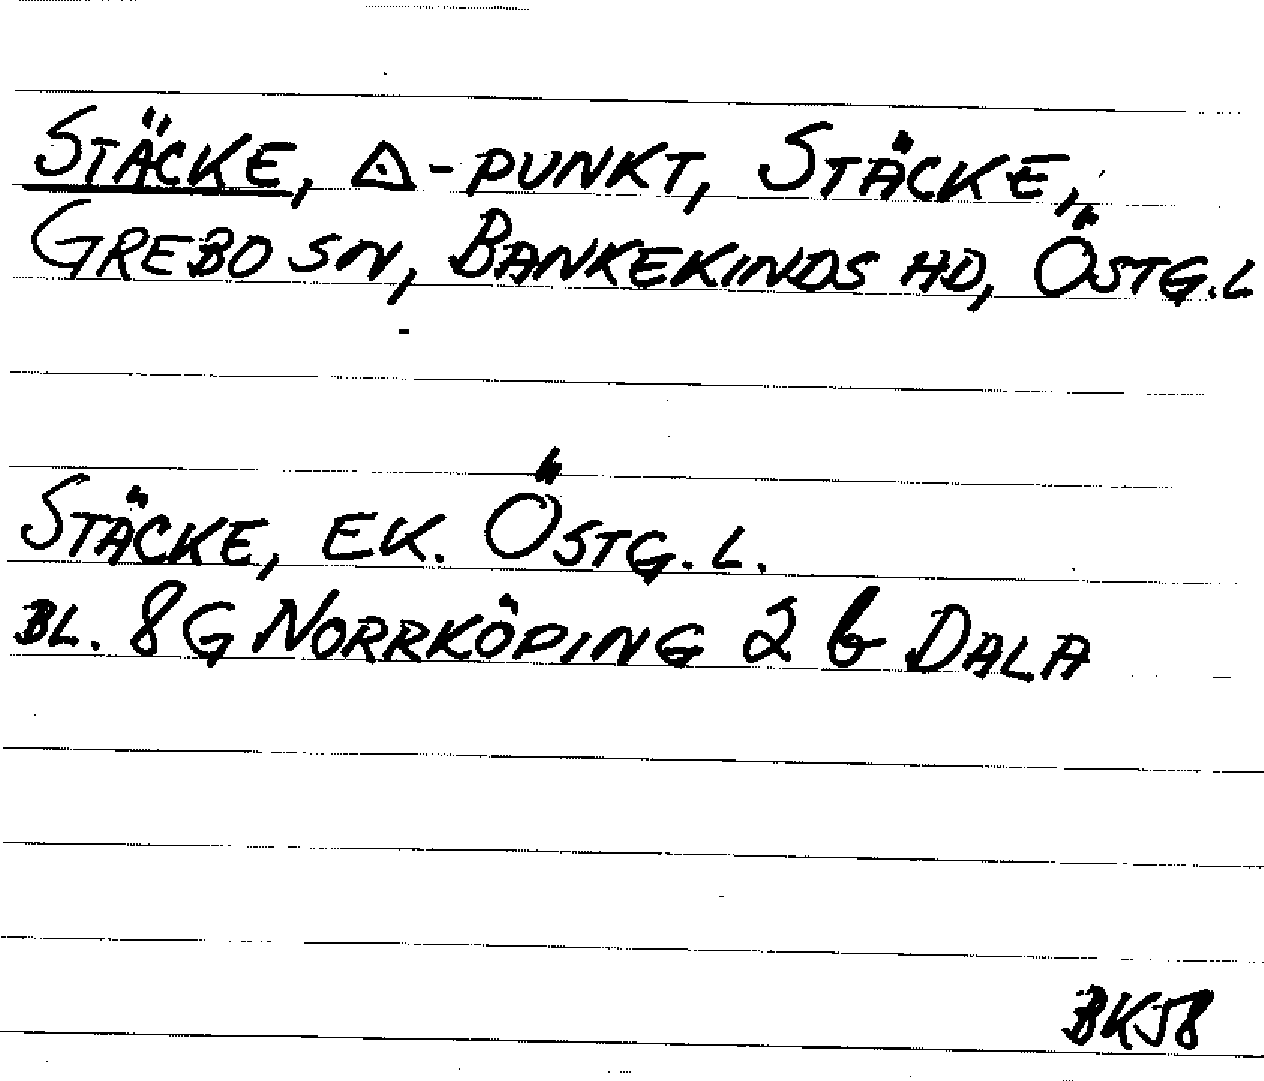 STÄCKE, △-PUNKT, STÄCKE,
GREBO SN, BANKEKINDS HD, ÖSTG.L
STÄCKE, EK. ÖSTG.L.
BL. 8G NORRKÖPING 2 b DALA
BKJ8